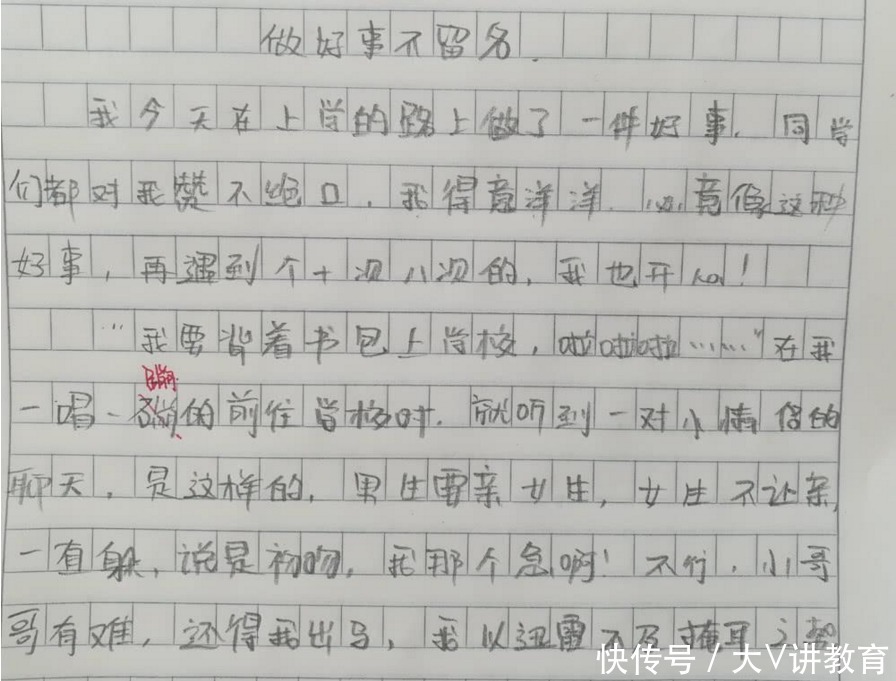 做好事不留名.
我今天在上学的路上做了一件好事.同学
们都对我赞不绝口,我得意洋洋.必竟像这种
好事,再遇到个十次八次的,我也开心!
“我要背着书包上学校,啦啦啦……”在我
蹦
一唱一的前往学校时.就听到一对小情侣的
聊天,是这样的,男生要亲女生,女生不让亲,
一直躲,说是初吻,我那个急啊!不行,小哥
哥有难,还得我出马,我以迅雷不及掩耳之势
快传号 / 大V讲教育